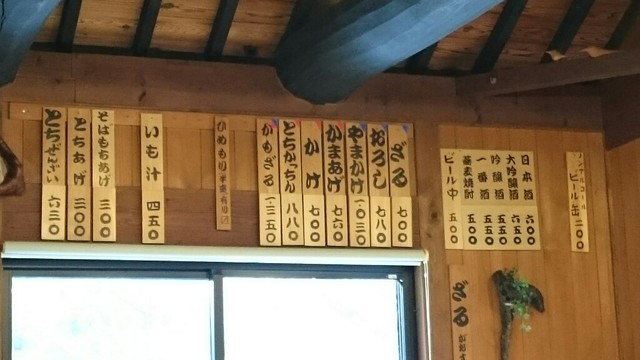 ノンアルコール
ビール缶 三〇〇
日本酒 六〇〇
大吟醸酒 六五〇
吟醸酒 五五〇
一番酒 五五〇
蕎麦焼酎 五〇〇
ビール中 五〇〇
ざる
ざる 七〇〇
おろし 七八〇
やまかけ 一〇三〇
かまあげ 七六〇
かけ 七〇〇
とちかっちん 八八〇
かもざる 一三五〇
いも汁 四五〇
そばもちあげ 三〇〇
とちあげ 三〇〇
とちぜんざい 六三〇